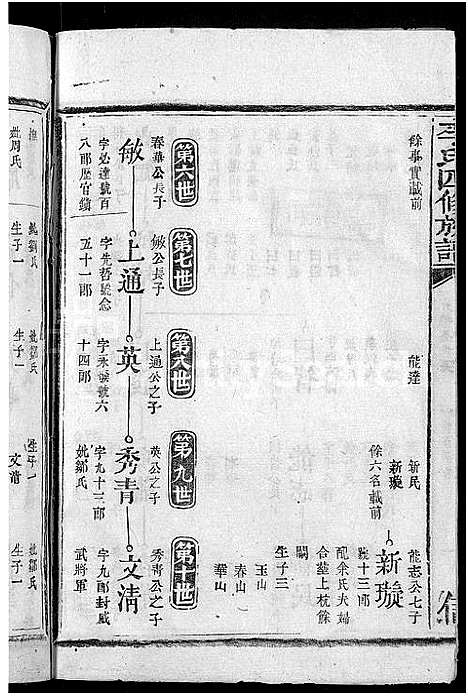 氏四修族譜
餘事實載前
能達
新民
新璇
餘六名載前
能志公七子
新璇
號十三郎
配余氏夫婦
合塟上杭餘
生子三
玉山
春山
華山
第六世
第七世
第八世
第九世
第十世
春華公長子
敏公長子
上通公之子
英公之子
秀青公之子
敏
上通
英
秀青
文淸
字必達號百
八郎歷官鎮
字先哲號念
五十一郎
字永號六
十四郎
字九十三郎
妣鄒氏
字九郎封威
武將軍
妣周氏
妣劉氏
生子一
妣鄒氏
生子一
生子一
文淸
妣鄒氏
生子一